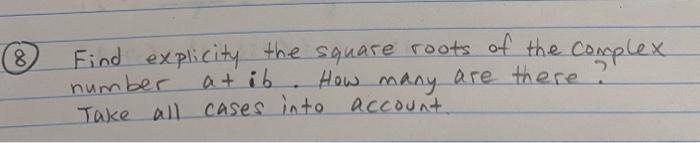 8 Find explicity the square roots of the complex
number a+ib. How many are there?
Take all cases into account.